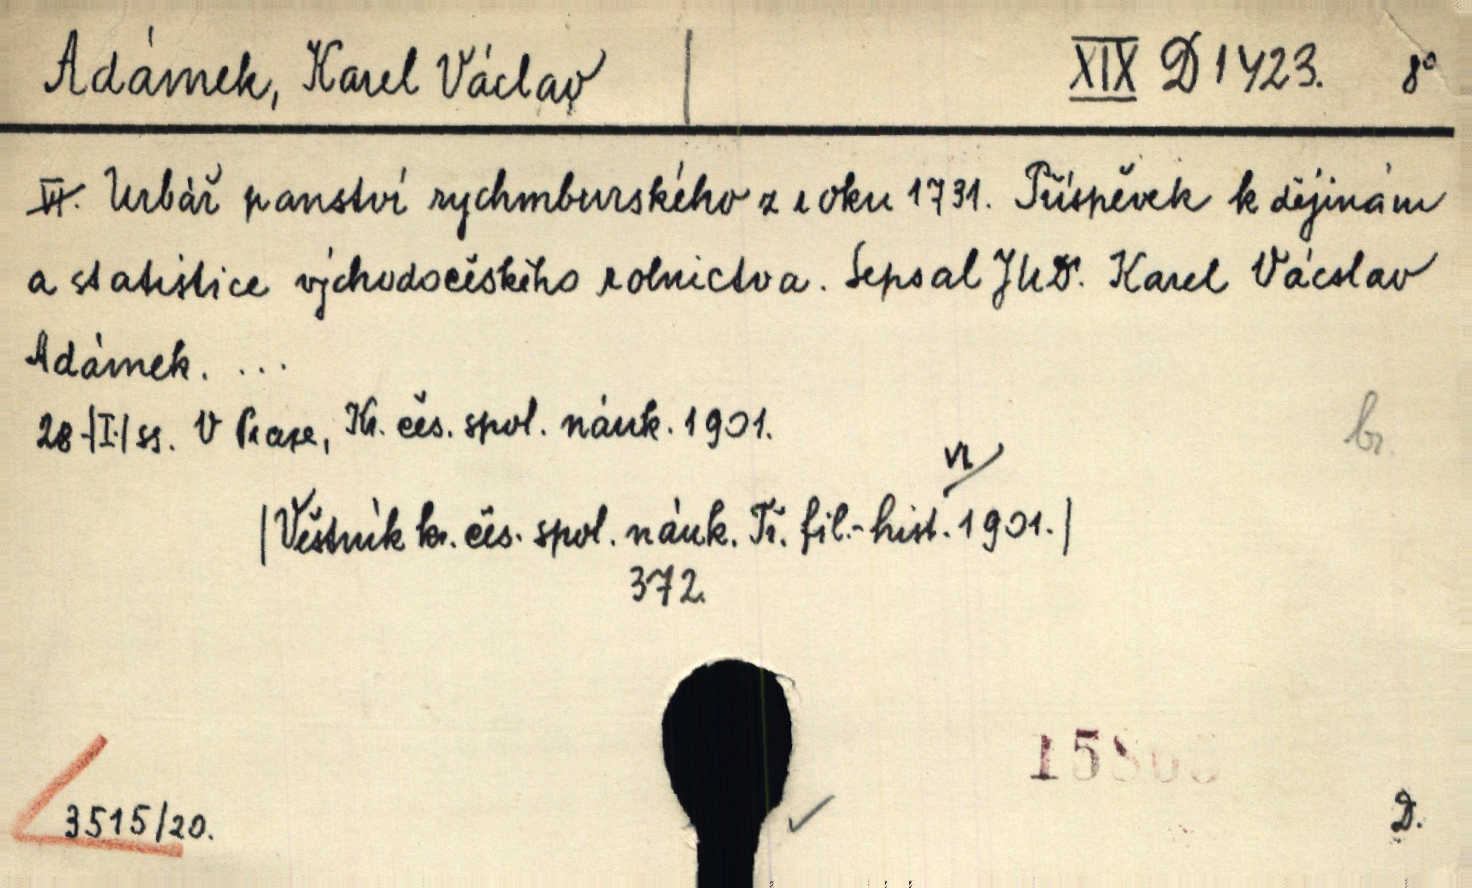 Adámek, Karel Václav XIX D 1423. 8°
VI. Urbář panství rychmburského z roku 1731. Příspěvek k dějinám
a statistice východočeského rolnictva. Sepsal JUDr. Karel Václav
Adámek. ...
28 |I| ss. V Praze, Kr. čes. spol. náuk. 1901.
br.
VI
|Věstník kr. čes. spol. náuk. Tř. fil.-hist. 1901.|
372.
3515/20.
D.